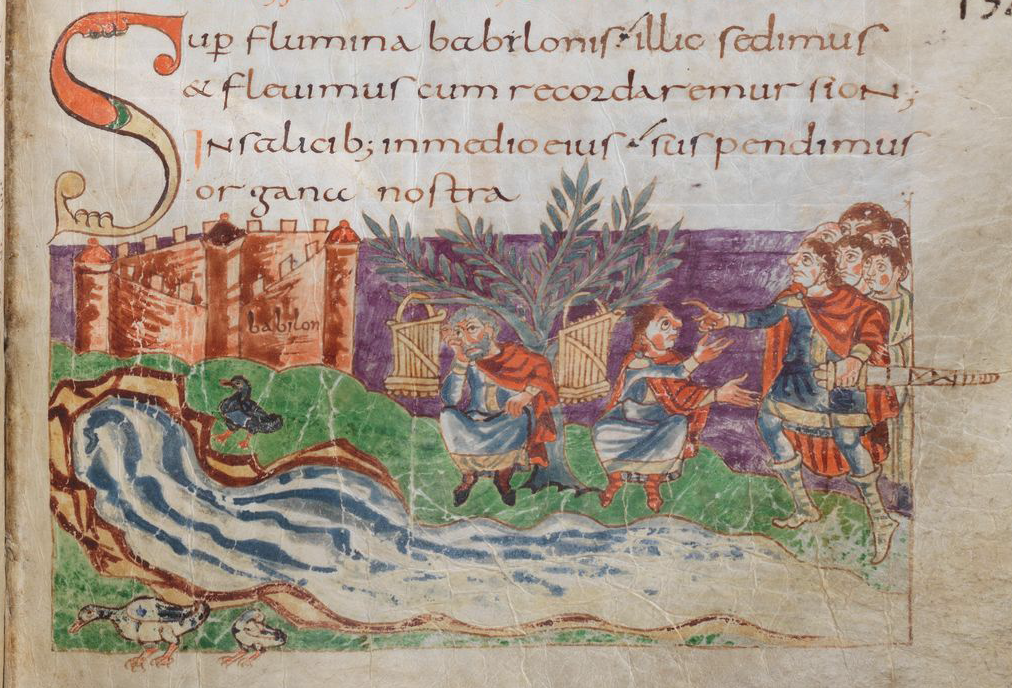 Sup flumina babilonis illic sedimus
& fleuimus cum recordaremur sion;
INsalicib; inmedio eius suspendimus
organa nostra
babilon